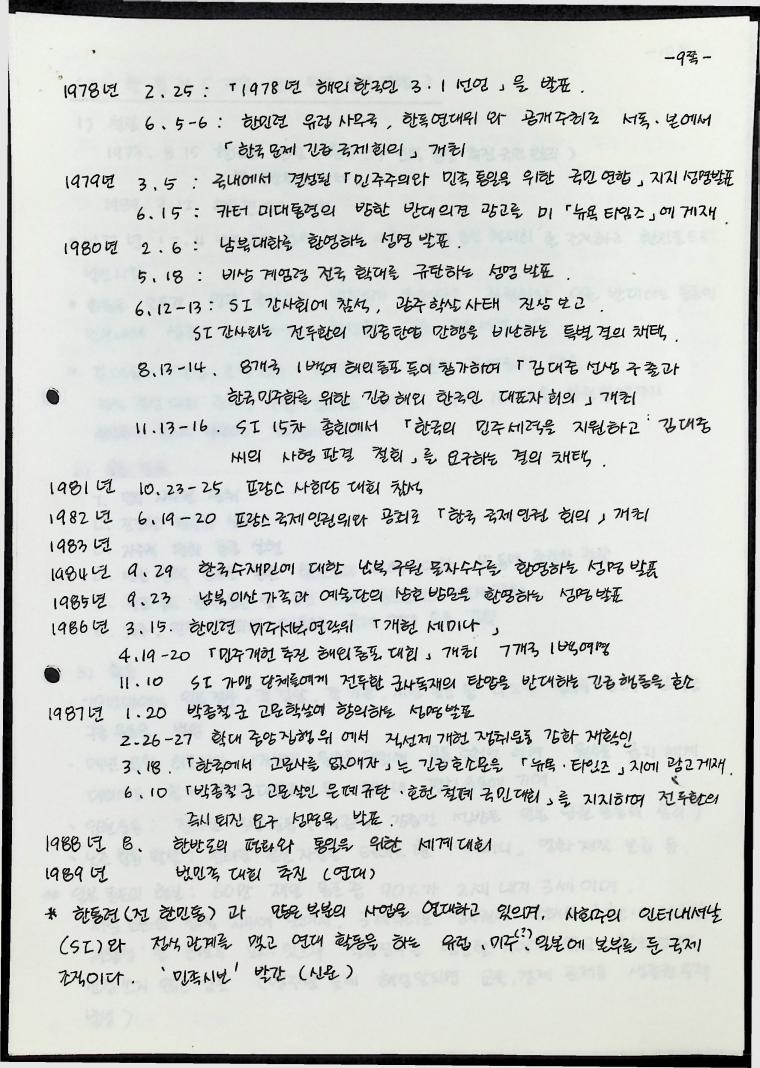 -9쪽-
1978년 2.25 : 「1978년 해외한국인 3·1선언」을 발표.
6. 5-6 : 한민련 유럽 사무국, 한독연대위와 공개주최로 서독·본에서
「한국문제 긴급국제회의」개최
1979년 3.5 : 국내에서 결성된 「민주주의와 민족통일을 위한 국민연합」지지성명발표
6.15 : 카터 미대통령의 방한 반대의견 광고를 미 「뉴욕타임즈」에 게재.
1980년 2.6 : 남북대화를 환영하는 성명 발표.
5.18 : 비상계엄령 전국 확대를 규탄하는 성명 발표.
6.12-13 : SI 간사회에 참석, 광주학살사태 진상보고.
SI간사회는 전두환의 민중탄압 만행을 비난하는 특별결의 채택.
8.13-14. 8개국 1백여 해외동포들이 참가하여 「김대중 선생 구출과
한국민주화를 위한 긴급해외 한국인 대표자회의」개최
11.13-16. SI 15차 총회에서 「한국의 민주세력을 지원하고 김대중
씨의 사형판결 철회」를 요구하는 결의 채택.
1981년 10.23-25 프랑스 사회당 대회 참석
1982년 6.19-20 프랑스국제인권위와 공최로 「한국국제인권회의」개최
1983년
1984년 9.29 한국수재민에 대한 남북구원물자수수를 환영하는 성명 발표
1985년 9.23 남북이산가족과 예술단의 상호방문을 환영하는 성명발표
1986년 3.15. 한민련 미주서부연락위 「개헌 세미나」
4.19-20 「민주개헌 추진 해외동포 대회」개최 7개국 1백여명
11.10 SI 가맹 단체들에게 전두환 군사독재의 탄압을 반대하는 긴급행동을 호소
1987년 1.20 박종철군 고문학살에 항의하는 성명발표
2-26-27 확대 중앙집행위에서 직선제 개헌 쟁취운동 강화 재확인
3.18. 「한국에서 고문사를 없애자」는 긴급호소문을 「뉴욕·타임즈」지에 광고게재.
6.10 「박종철군 고문살인 은폐규탄·호헌철폐 국민대회」를 지지하며 전두환의
즉시 퇴진 요구 성명을 발표.
1988년 8. 한반도의 평화와 통일을 위한 세계대회
1989년 범민족 대회 추진 (연대)
* 한통련(전 한민통)과 많은부분의 사업을 연대하고 있으며, 사회주의 인터내셔날
(SI)와 정식관계를 맺고 연대 활동을 하는 유럽, 미주(?), 일본에 본부를 둔 국제
조직이다. '민족시보' 발간 (신문)